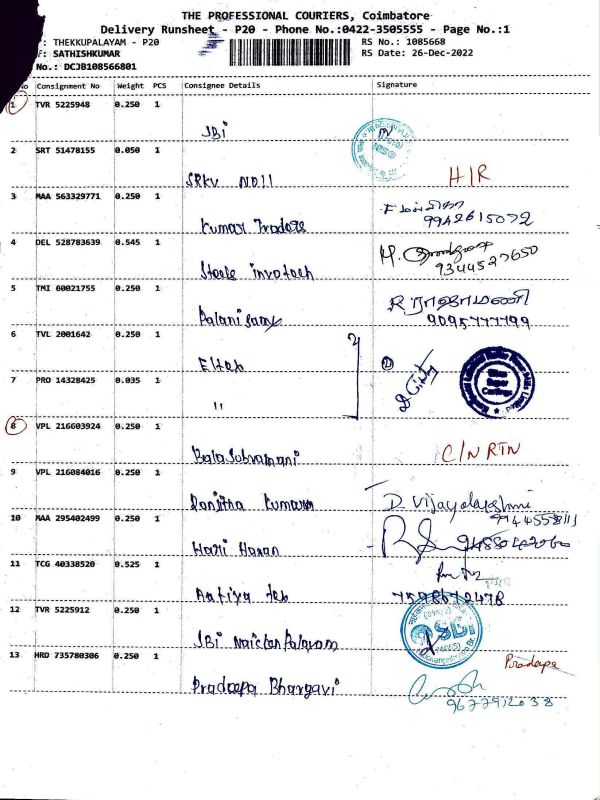 THE PROFESSIONAL COURIERS, Coimbatore
Delivery Runsheet - P20 - Phone No.:0422-3505555 - Page No.:1
: THEKKUPALAYAM - P20 RS No.: 1085668
F: SATHISHKUMAR RS Date: 26-Dec-2022
No.: DCJB108566801
No Consignment No Weight PCS Consignee Details Signature
1 TVR 5225948 0.250 1
SBi
2 SRT 51478155 0.050 1
SRKV NO11 H/R
3 MAA 563329771 0.250 1
Kumar Traders 9942615072
4 DEL 528783639 0.545 1
Steele invotech 9344527650
5 TMI 60021755 0.250 1
Palanisamy R ராஜாமணி
9095777799
6 TVL 2001642 0.250 1
Eltex
7 PRO 14328425 0.035 1
"
8 VPL 216603924 0.250 1
Balasubramani C/N RTN
9 VPL 216084016 0.250 1
Ranjitha Kumaran D. Vijayalakshmi
10 MAA 295402499 0.250 1
Hari Haran
11 TCG 40338520 0.525 1
12 TVR 5225912 0.250 1
SBi Naicken Palayam SBI
13 HRD 735780306 0.250 1 Pradeepa
Pradeepa Bhargavi